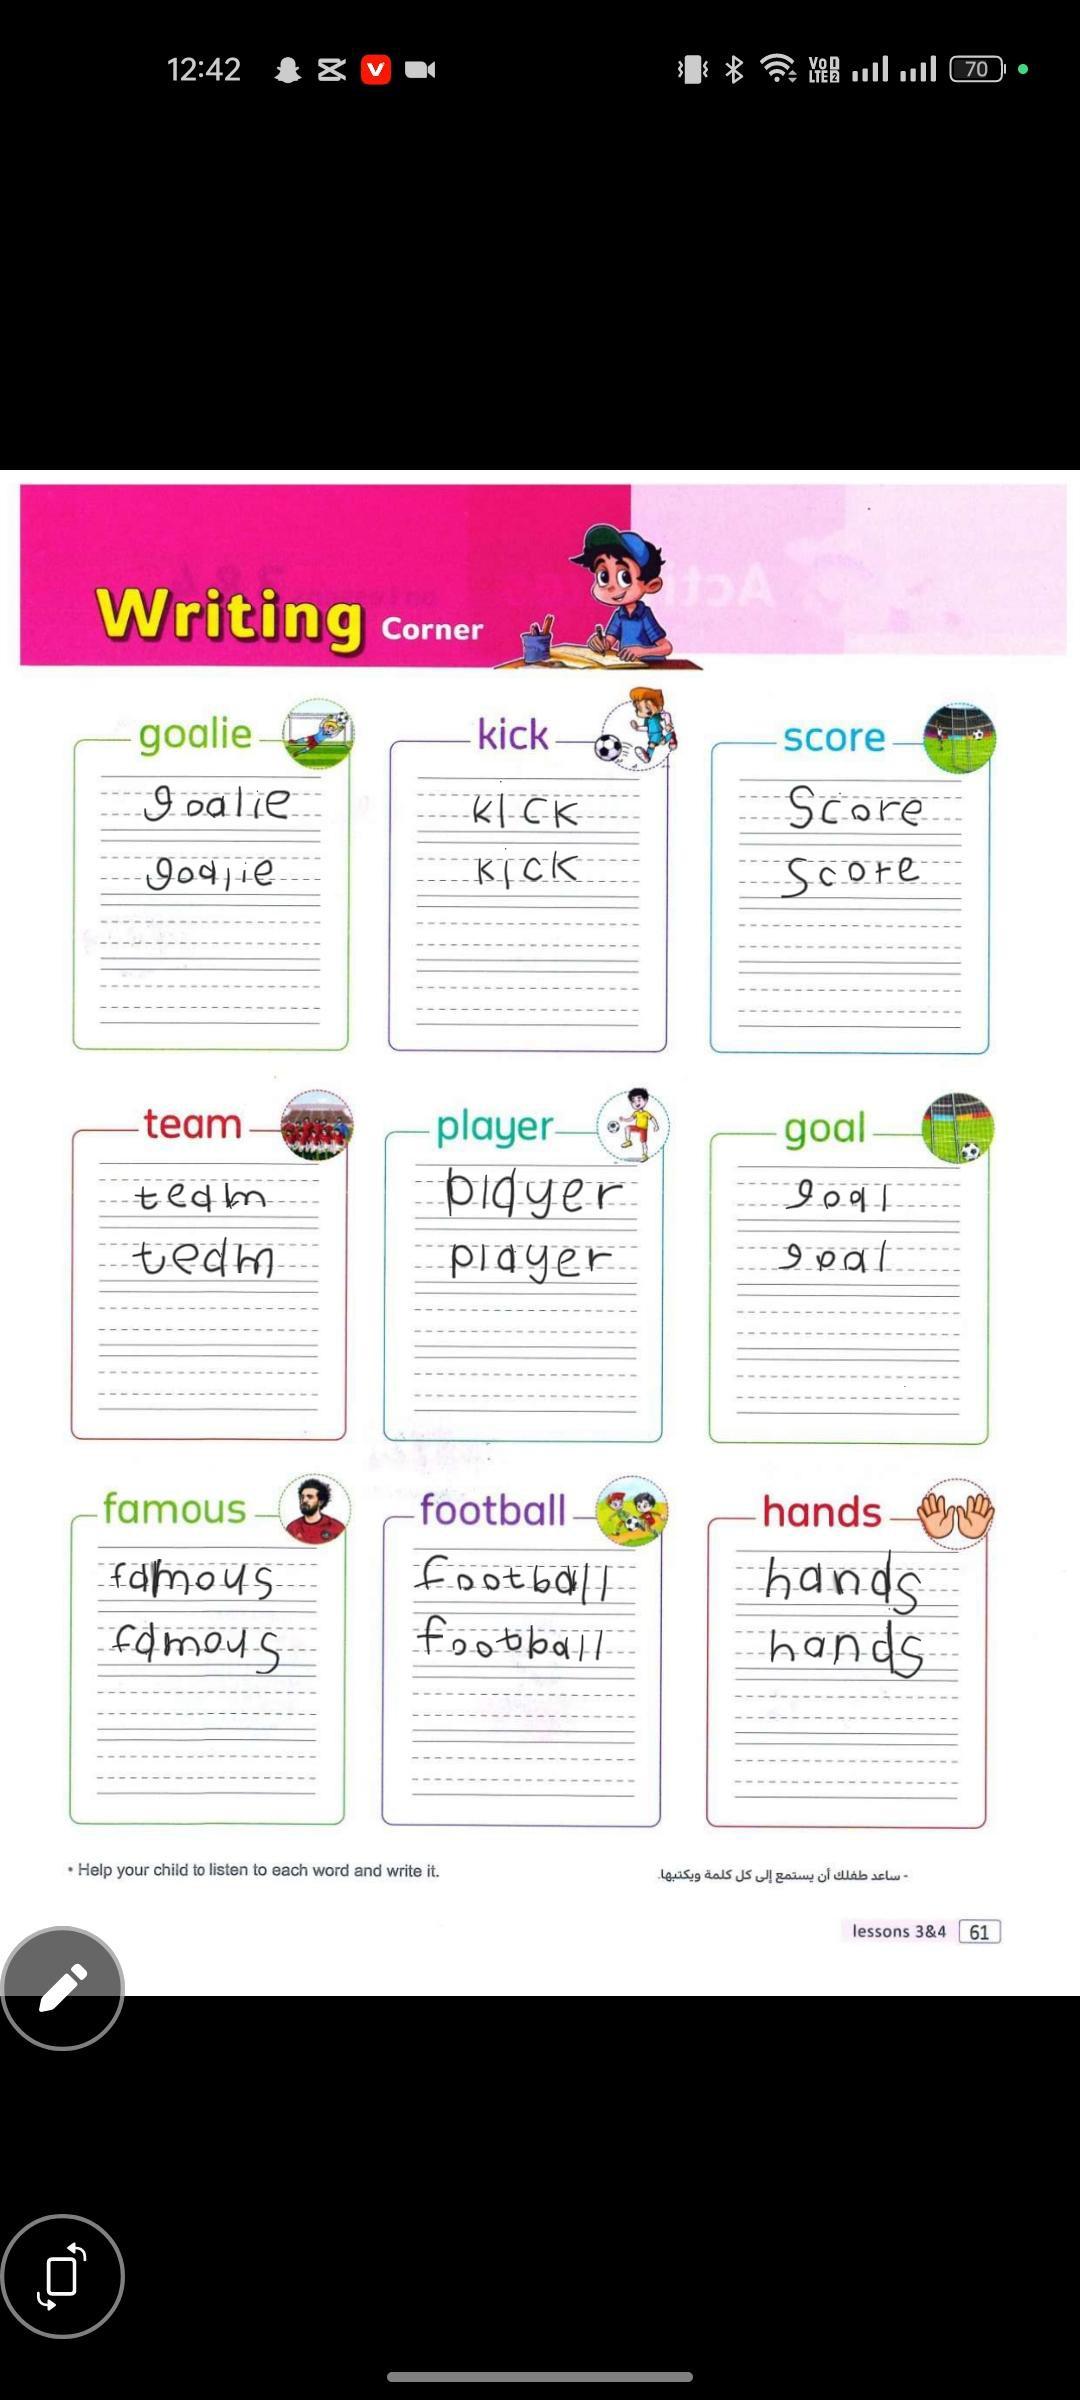 12:42
Vo
LTE2
70
Writing Corner
goalie
goalie
goalie
kick
kick
kick
score
Score
Score
team
team
team
player
player
player
goal
goal
goal
famous
famous
famous
football
football
football
hands
hands
hands
• Help your child to listen to each word and write it.
- ساعد طفلك أن يستمع إلى كل كلمة ويكتبها.
lessons 3&4 61